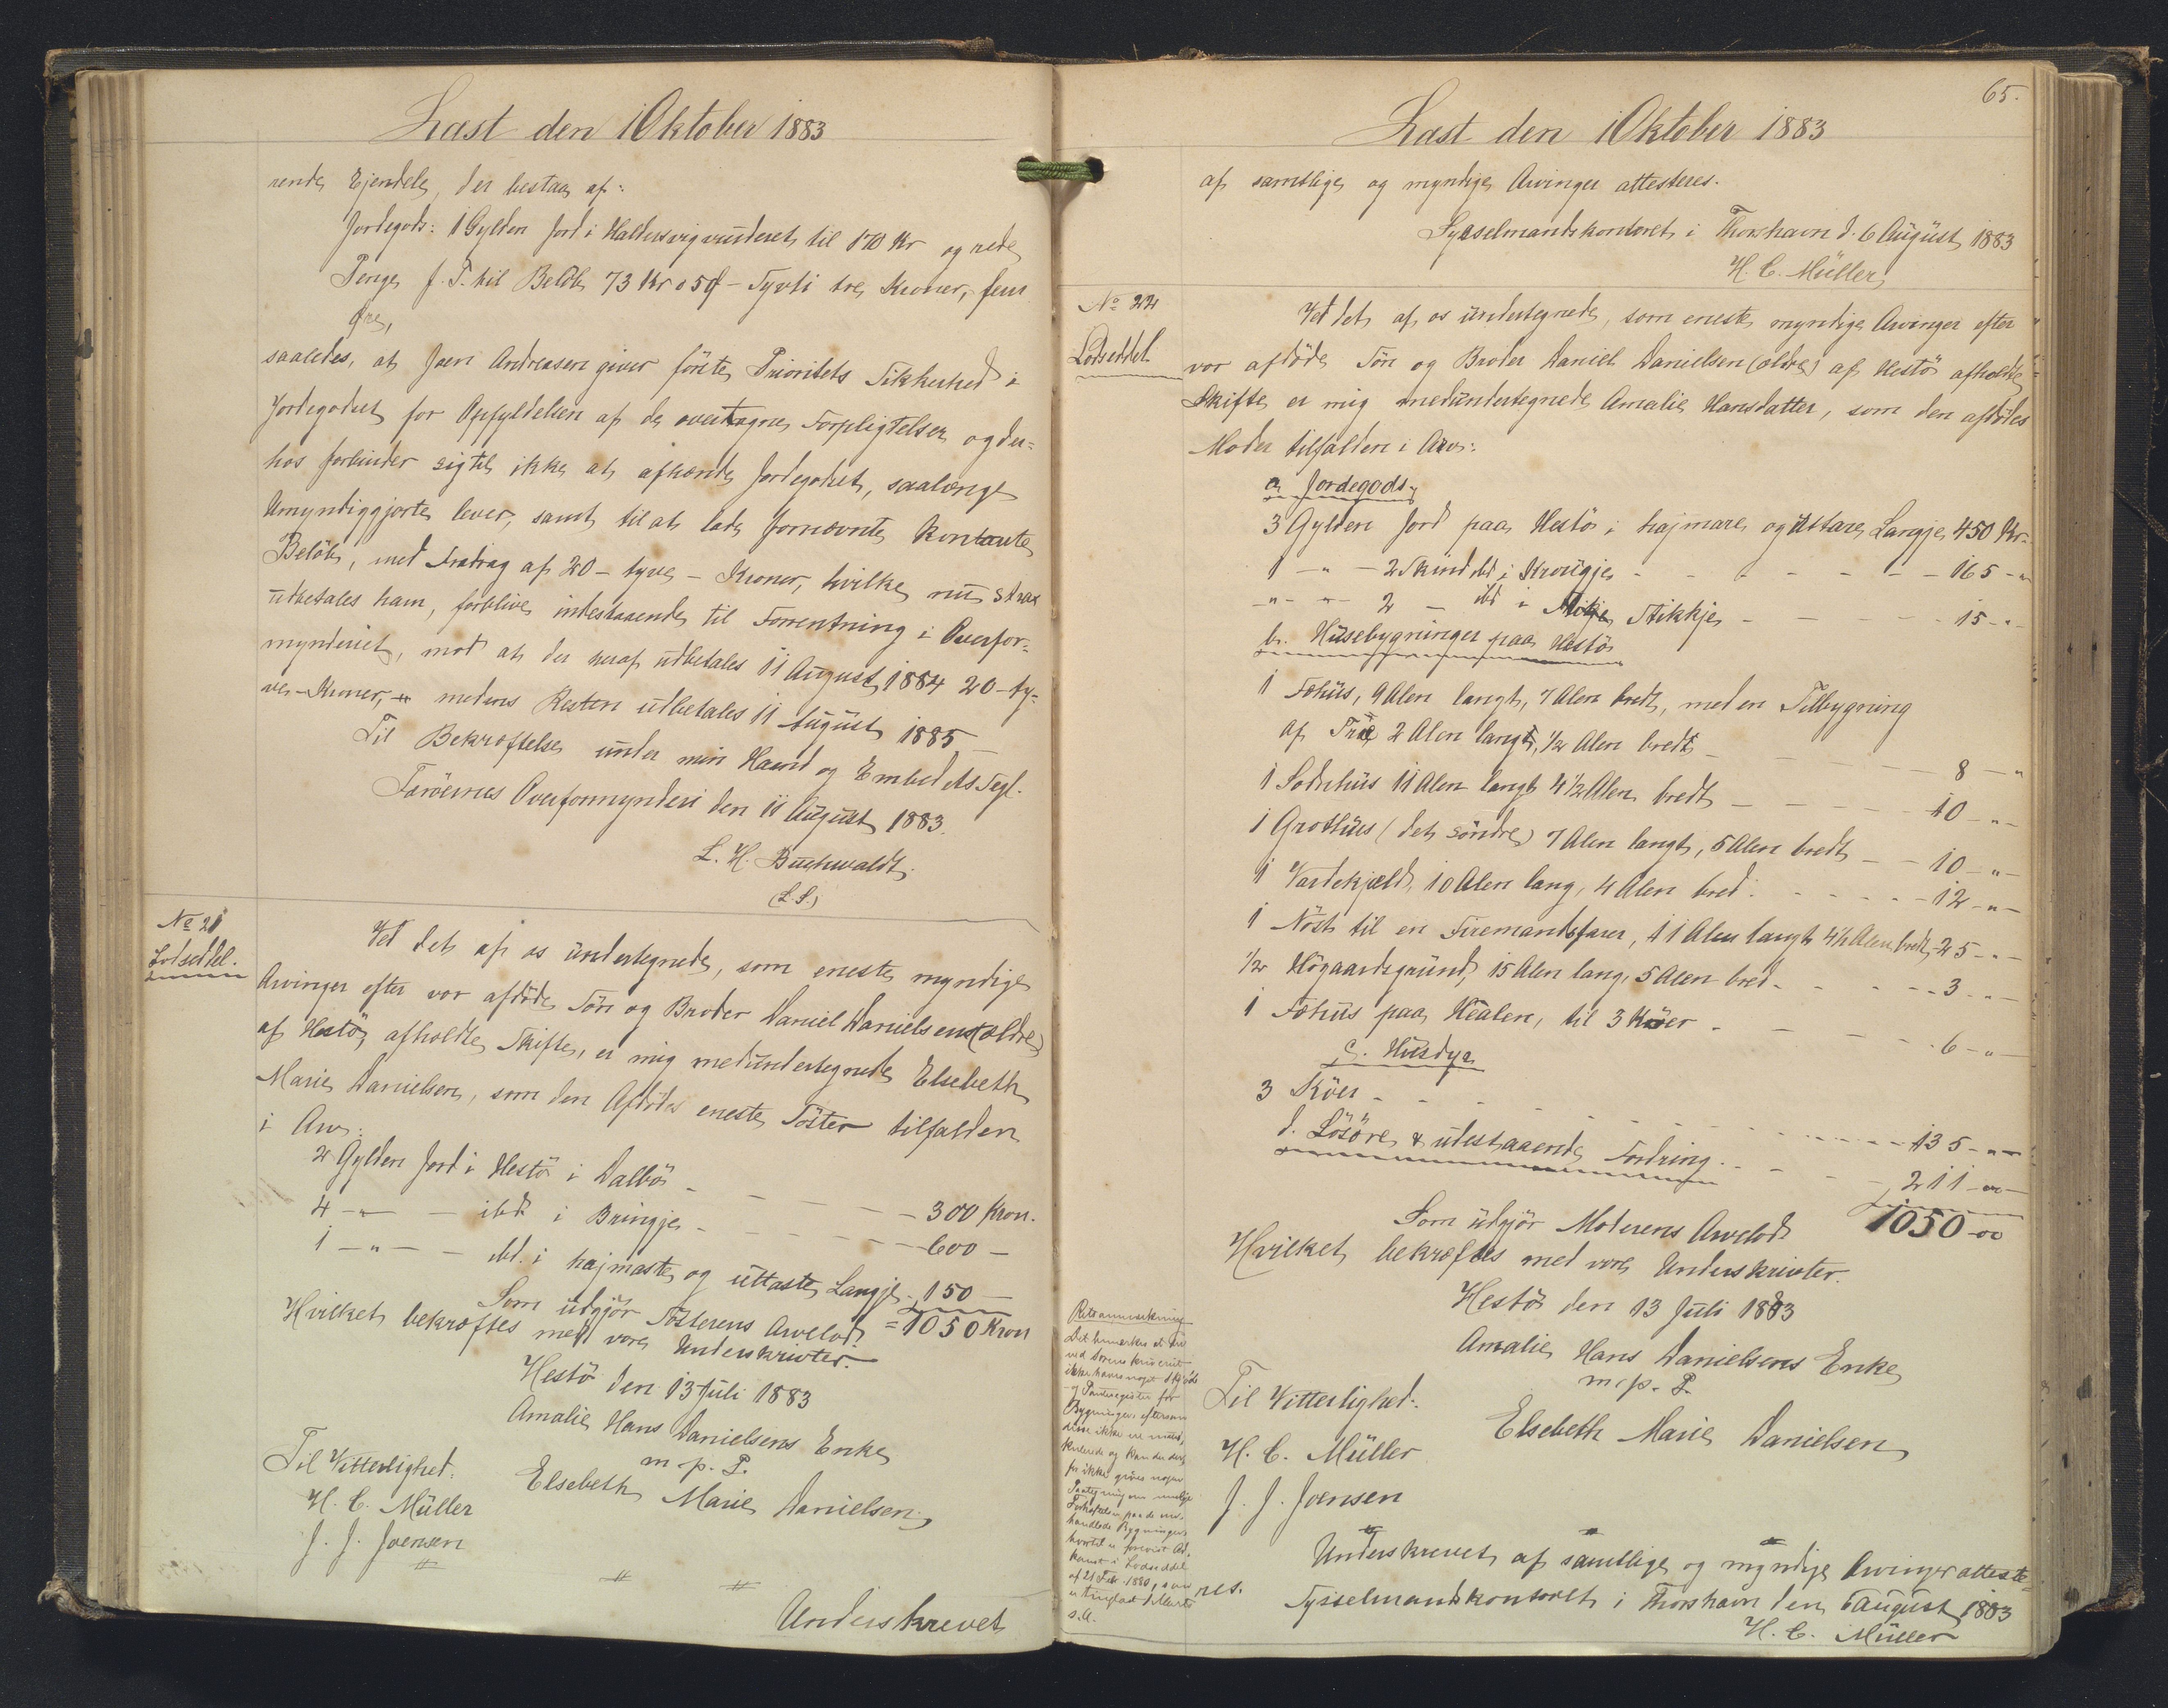 Læst den 1 Oktober 1883
rende Ejendele, der bestaa af:
Jordegods: 1 Gylden Jord i Haldersvig til 170 Kr og rede
Penge f. T. til Beløb 73 Kr 05 Ø - Syvti tre Kroner, fem
Øre,
saaledes, at Joen Andreasen giver förste Prioritets Sikkerhed i
Jordegodset for Opfyldelsen af de overtagne Forpligtelser og der=
hos forbinder sig til ikke at afhænde Jordegodset, saalænge
Umyndiggjorte lever, samt til at lade fornævnte kontante
Beløb, med Fradrag af 20 - tyve - Kroner, hvilke nu strax
udbetales ham, forblive indestaaende til Forrentning i Overfor=
mynderiet, mod at der heraf udbetales 11 August 1884 20 - ty=
ve - Kroner, medens Resten udbetales 11 August 1885
Til Bekræftelse under min Haand og Embeds Segl.
Færöernes Overformynderi den 11 August 1883.
L. H. Buchwaldt.
(L.S.)
No 21
Lodseddel.
Ved det af os undertegnede, som eneste myndige
Arvinger efter vor afdöde Sön og Broder Daniel Danielsen (ældre)
af Hestö, afholdte Skifte, er mig medundertegnede Elsebeth
Marie Danielsen, som den Afdödes eneste Söster tilfalden
i Arv:
2 Gylden Jord i Hestö i Dalbö - - - - 300 Kron.
4 - " - - ibd i Bringje - - - - 600 -
1 - " - - ibd. i hajmaste og uttaste Langje - 150 -
Som udgjör Sösterens Arvelod = 1050 Kron
Hvilket bekræftes med vore Underskrivter.
Hestö den 13 Juli 1883
Amalie Hans Danielsens Enke
m. p. P.
Elsebeth Marie Danielsen
Til Vitterlighed:
H. C. Müller
J. J. Joensen
Underskrevet
65.
Læst den 1 Oktober 1883
af samtlige og myndige Arvinger attesteres.
Sysselmandskontoret i Thorshavn d. 6 August 1883
H. C. Müller
No 22
Lodseddel
Ved det af os undertegnede, som eneste myndige Arvinger efter
vor afdöde Sön og Broder Daniel Danielsen (ældre) af Hestö afholdte
Skifte er mig medundertegnede Amalie Hansdatter, som den afdödes
Moder tilfalden i Arv:
a. Jordegods
3 Gylden Jord paa Hestö i hajmare og uttare Langje 450 Kr.
1 - " - 2 Skind ibd. i Krougje - - - - 165 - "
- " - " - 2 - ibd i Stikkje - - - - 15 - " -
b. Husebygninger paa Hestö
1 Fæhus, 9 Alen langt, 7 Alen bredt, med en Tilbygning
af Træ 2 Alen langt, 1/2 Alen bredt - - - - 8 - "
1 Sodnhus 11 Alen langt 4 1/2 Alen bredt - - - - 10 - " -
1 Grothus (det söndre) 7 Alen langt, 5 Alen bredt - - 10 - " -
1 10 Alen lang, 4 Alen bred. - - - - 12 - " -
1 Nöst til en Firemandsfarer, 11 Alen langt 4 1/2 Alen bredt - 25 - " -
1/2 Högaardsgrund, 15 Alen lang, 5 Alen bred - - - - 3 - " -
1 Fæhus paa Healen, til 3 Köer - - - - 6 - " -
c. Husdyr
3 Köer - - - - 135 - " -
d. Lösöre & udestaaende Fordring - - - 211 - oo -
Som udgjör Moderens Arvelod 1050 - oo
Hvilket bekræftes med vore Underskrivter.
Hestö den 13 Juli 1883
Amalie Hans Danielsens Enke
m. p. P.
Elsebeth Marie Danielsen
Til Vitterlighed:
H. C. Müller
J. J. Joensen
Retsanmærkning
Det bemærkes at der
ved Sorenskriveriet
ikke haves noget Skjöde
og Panteregister for
Bygninger, eftersom
disse ikke ere
og kan der der
for ikke gives nogen
Paategning om mulige
Forhæftelser paa de om-
handlede Bygninger
hvortil er forevist Ad-
komst i Lodseddel
af 21 Feb. 1880, som
er tinglæst d. Marts
s. A.
Underskrevet af samtlige og myndige Arvinger atteste=
res.
Sysselmandskontoret i Thorshavn den 6 August 1883
H. C. Müller